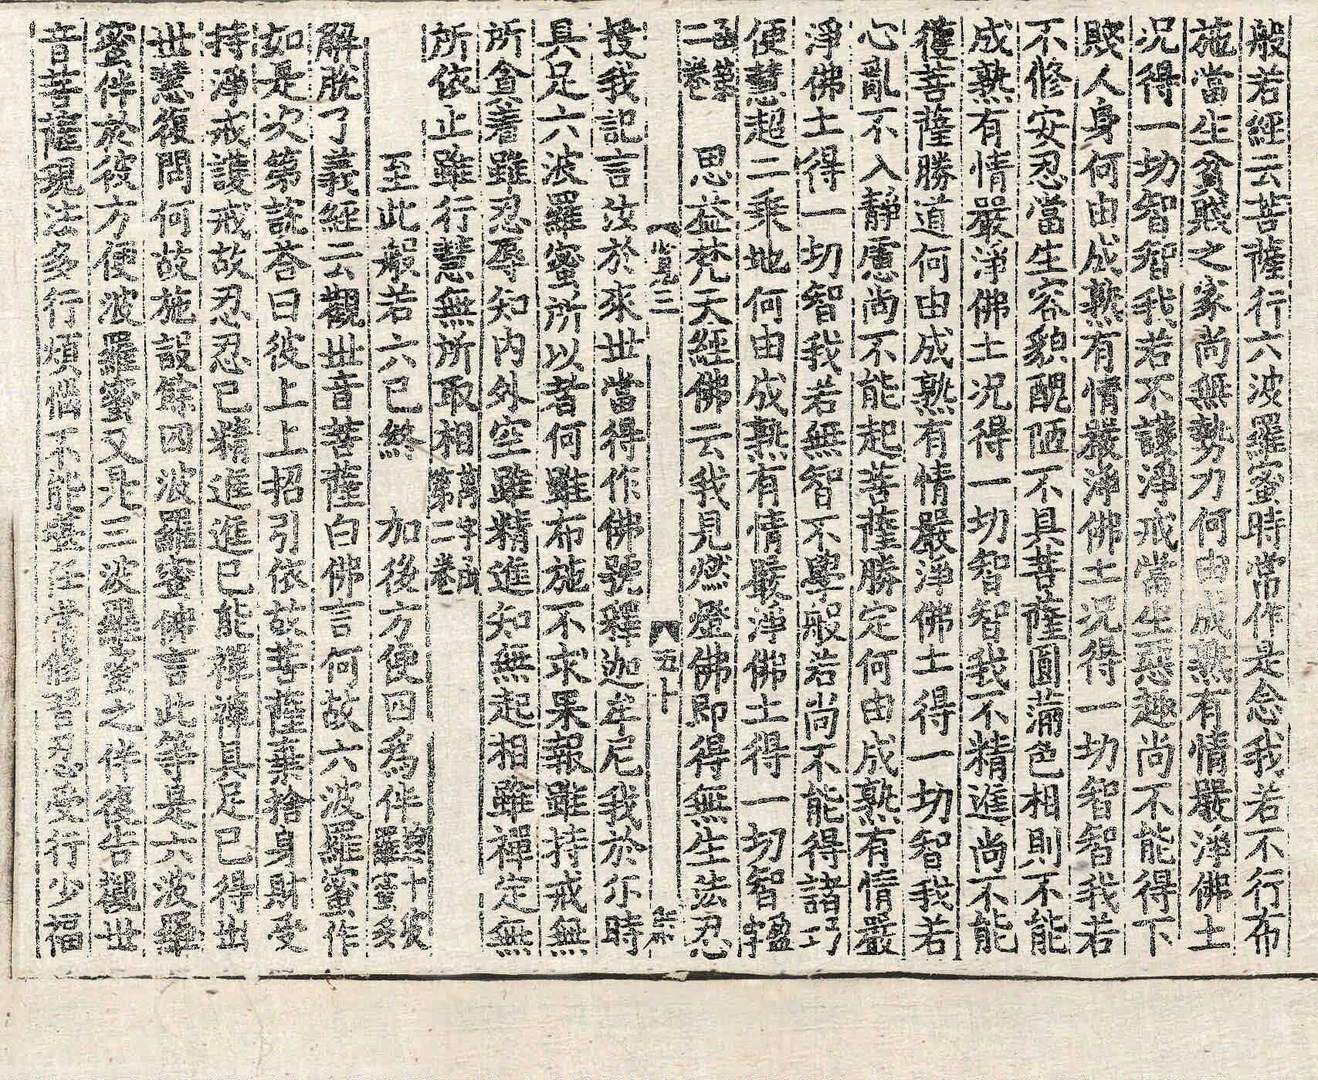 般若經云菩薩行六波羅蜜時常作是念我若不行布
施當生貧賤之家尚無勢力何由成熟有情嚴淨佛土
況得一切智智我若不護淨戒當生惡趣尚不能得下
賤人身何由成熟有情嚴淨佛土況得一切智智我若
不修安忍當生容貌醜陋不具菩薩圓滿色相則不能
成熟有情嚴淨佛土況得一切智智我不精進尚不能
獲菩薩勝道何由成熟有情嚴淨佛土得一切智我若
心亂不入靜慮尚不能起菩薩勝定何由成熟有情嚴
淨佛土得一切智我若無智不學般若尚不能得諸巧
便慧超二乘地何由成熟有情嚴淨佛土得一切智盈字
函第二卷　思益梵天經佛云我見燃燈佛即得無生法忍
五十
授我記言汝於來世當得作佛號釋迦牟尼我於尒時
具足六波羅蜜所以者何雖布施不求果報雖持戒無
所貪著雖忍辱知內外空雖精進知無起相雖禪定無
所依止雖行慧無所取相萬字函第二卷
至此般若六已終　加後方便四為伴
解脫了義經云觀世音菩薩白佛言何故六波羅蜜作
如是次第說荅曰彼上上招引依故菩薩棄捨身財受
持淨戒護戒故忍忍已精進進已能禪禪具足已得出
世慧復問何故施設餘四波羅蜜佛言此等是六波羅
蜜伴於彼方便波羅蜜又是三波羅蜜之伴復告觀世
音菩薩現法多行煩惱不能堪任常修習忍受行少福